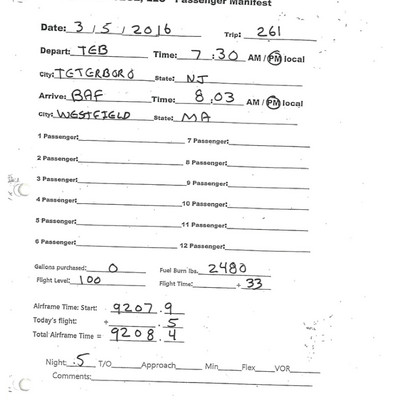 LLC - Passenger Manifest
Date: 3 / 5 / 2016 Trip: 261
Depart: TEB Time: 7 : 30 AM / PM local
City: TETERBORO State: NJ
Arrive: BAF Time: 8 : 03 AM / PM local
City: WESTFIELD State: MA
1 Passenger: 7 Passenger:
2 Passenger: 8 Passenger:
3 Passenger: 9 Passenger:
4 Passenger: 10 Passenger:
5 Passenger: 11 Passenger:
6 Passenger: 12 Passenger:
Gallons purchased: 0 Fuel Burn lbs. 2480
Flight Level: 100 Flight Time: + 33
Airframe Time: Start: 9207.9
Today's flight: + .5
Total Airframe Time = 9208.4
Night: .5 T/O Approach Min Flex VOR
Comments: